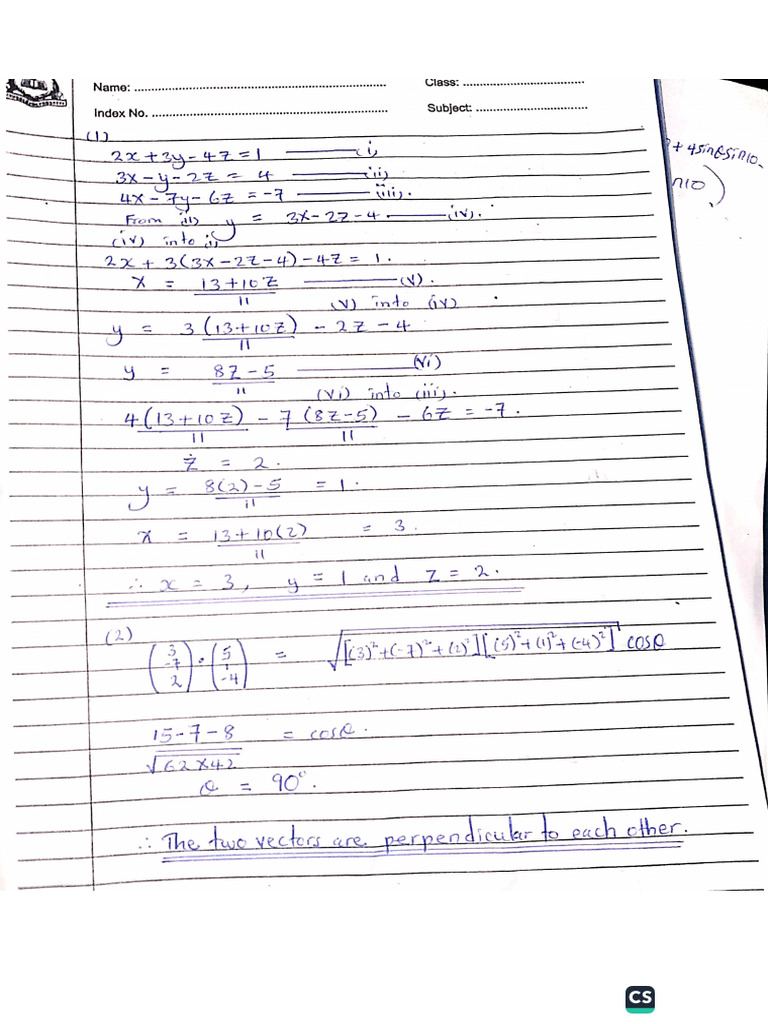 Name: ............ Class: ............
Index No. ............ Subject: ............
(1)
2x+3y-4z=1 ——— (i)
3x-y-2z = 4 ——— (ii)
4x-7y-6z = -7 ——— (iii).
From (ii) y = 3x-2z-4 ——— (iv).
(iv) into (i)
2x + 3(3x-2z-4)-4z = 1.
x = 13+10z / 11 ——— (v).
(v) into (iv)
y = 3(13+10z) / 11 - 2z - 4
y = 8z-5 / 11 ——— (vi)
(vi) into (iii).
4(13+10z) / 11 - 7(8z-5) / 11 - 6z = -7.
z = 2.
y = 8(2)-5 / 11 = 1.
x = 13+10(2) / 11 = 3.
∴ x = 3, y = 1 and z = 2.
(2)
(3 -7 2) · (5 1 -4) = √[(3)²+(-7)²+(2)²][(5)²+(1)²+(-4)²] cosθ
15-7-8 / √62×42 = cosθ.
θ = 90°.
∴ The two vectors are perpendicular to each other.
+ 4sinθsin10
CS